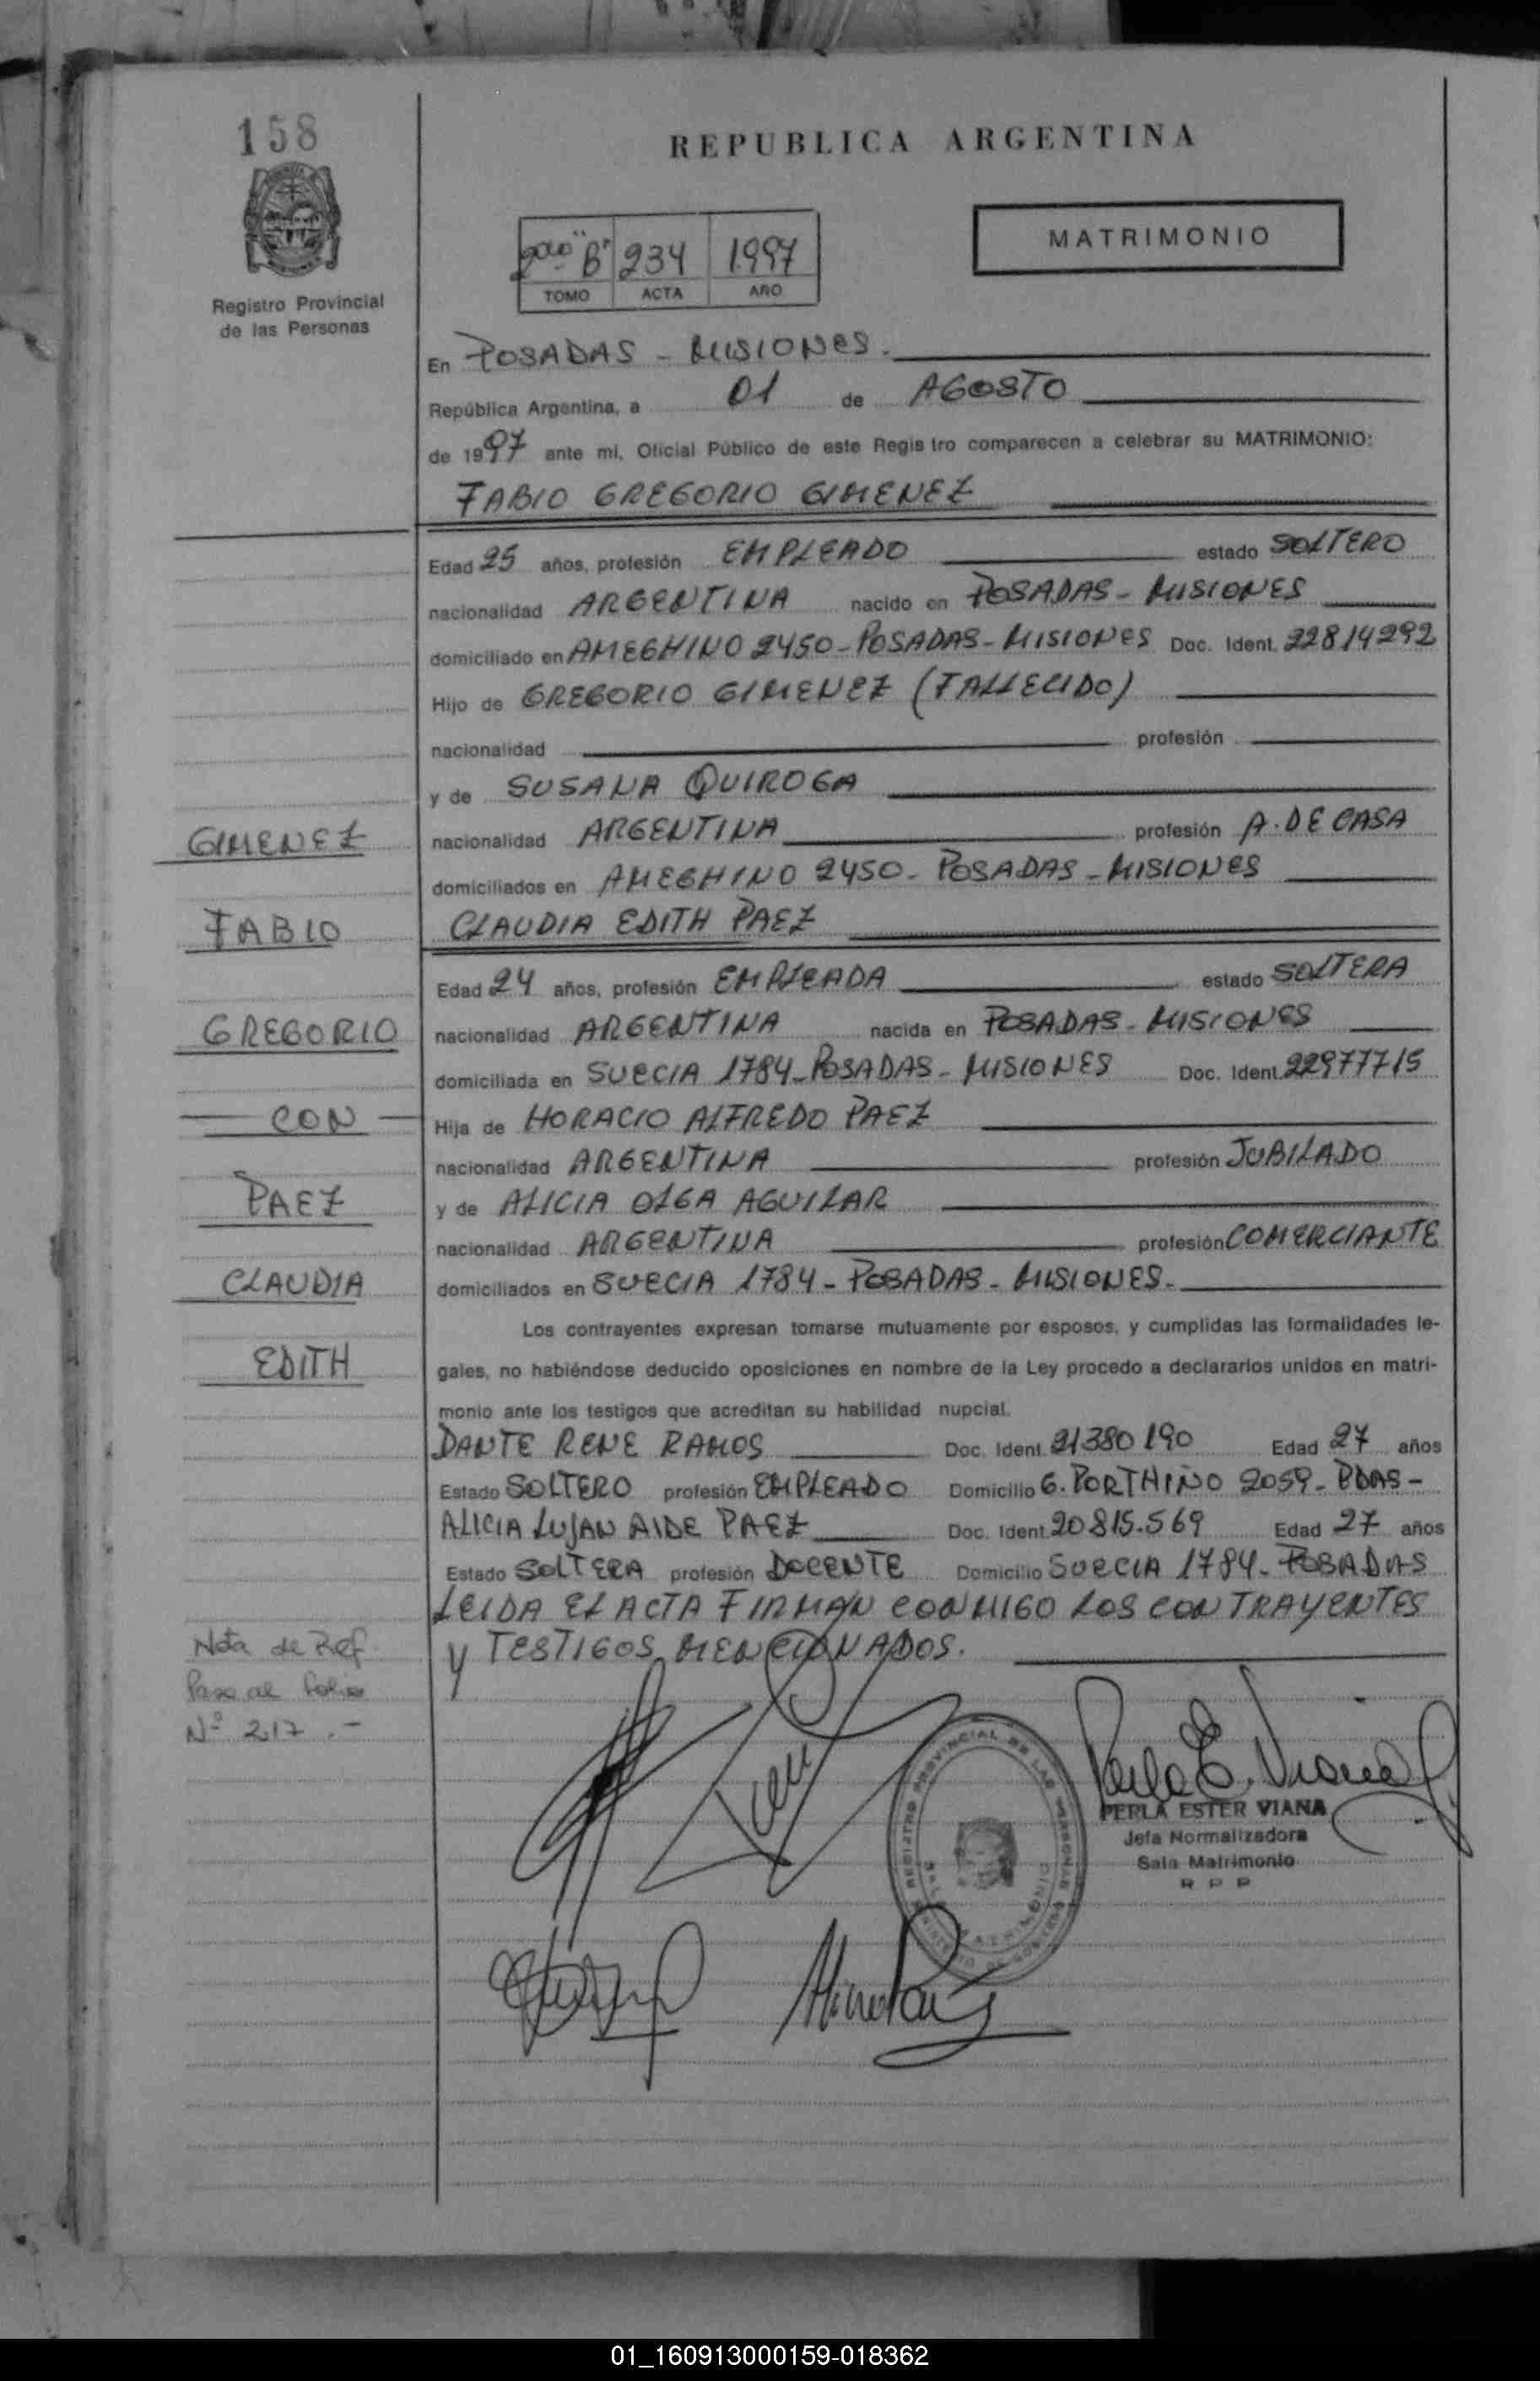 158
REPUBLICA ARGENTINA
MATRIMONIO
2do "B" 234 1997
TOMO ACTA AÑO
Registro Provincial
de las Personas
En POSADAS - MISIONES.
República Argentina, a 01 de AGOSTO
de 1997 ante mi, Oficial Público de este Regis tro comparecen a celebrar su MATRIMONIO:
FABIO GREGORIO GIMENEZ
Edad 25 años, profesión EMPLEADO estado SOLTERO
nacionalidad ARGENTINA nacido en POSADAS - MISIONES
domiciliado en AMEGHINO 2450 - POSADAS - MISIONES Doc. Ident. 22814292
Hijo de GREGORIO GIMENEZ (FALLECIDO)
nacionalidad profesión
y de SUSANA QUIROGA
nacionalidad ARGENTINA profesión A. DE CASA
domiciliados en AMEGHINO 2450 - POSADAS - MISIONES
CLAUDIA EDITH PAEZ
Edad 24 años, profesión EMPLEADA estado SOLTERA
nacionalidad ARGENTINA nacida en POSADAS - MISIONES
domiciliada en SUECIA 1784 - POSADAS - MISIONES Doc. Ident. 22977715
Hija de HORACIO ALFREDO PAEZ
nacionalidad ARGENTINA profesión JUBILADO
y de ALICIA OLGA AGUILAR
nacionalidad ARGENTINA profesión COMERCIANTE
domiciliados en SUECIA 1784 - POSADAS - MISIONES -
Los contrayentes expresan tomarse mutuamente por esposos, y cumplidas las formalidades le-
gales, no habiéndose deducido oposiciones en nombre de la Ley procedo a declararlos unidos en matri-
monio ante los testigos que acreditan su habilidad nupcial.
DANTE RENE RAMOS Doc. Ident. 21380190 Edad 27 años
Estado SOLTERO profesión EMPLEADO Domicilio G. PORTHIÑO 2059 - PDAS -
ALICIA LUJAN AIDE PAEZ Doc. Ident. 20.815.569 Edad 27 años
Estado SOLTERA profesión DOCENTE Domicilio SUECIA 1784 - POSADAS
LEIDA EL ACTA FIRMAN CONMIGO LOS CONTRAYENTES
Y TESTIGOS MENCIONADOS.
GIMENEZ
FABIO
GREGORIO
CON
PAEZ
CLAUDIA
EDITH
Nota de Ref.
Pasa al folio
Nº 217.-
Perla E. Viana
PERLA ESTER VIANA
Jefa Normalizadora
Sala Matrimonio
R P P
REGISTRO PROVINCIAL DE LAS PERSONAS
01_160913000159-018362